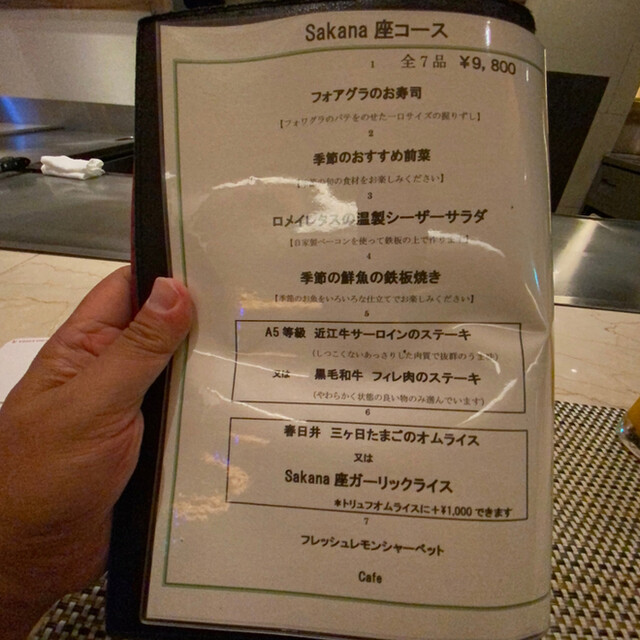 Sakana 座コース
全7品 ¥9,800
1
フォアグラのお寿司
【フォワグラのパテをのせた一口サイズの握りずし】
2
季節のおすすめ前菜
の旬の食材をお楽しみください】
3
ロメイレタスの温製シーザーサラダ
【自家製ベーコンを使って鉄板の上で作ります】
4
季節の鮮魚の鉄板焼き
【季節のお魚をいろいろな仕立てでお楽しみください】
5
A5等級 近江牛サーロインのステーキ
(しつこくないあっさりした肉質で抜群のうまさ)
又は 黒毛和牛 フィレ肉のステーキ
(やわらかく状態の良い物のみ選んでいます)
6
春日井 三ヶ日たまごのオムライス
又は
Sakana 座ガーリックライス
*トリュフオムライスに+¥1,000できます
7
フレッシュレモンシャーベット
Cafe